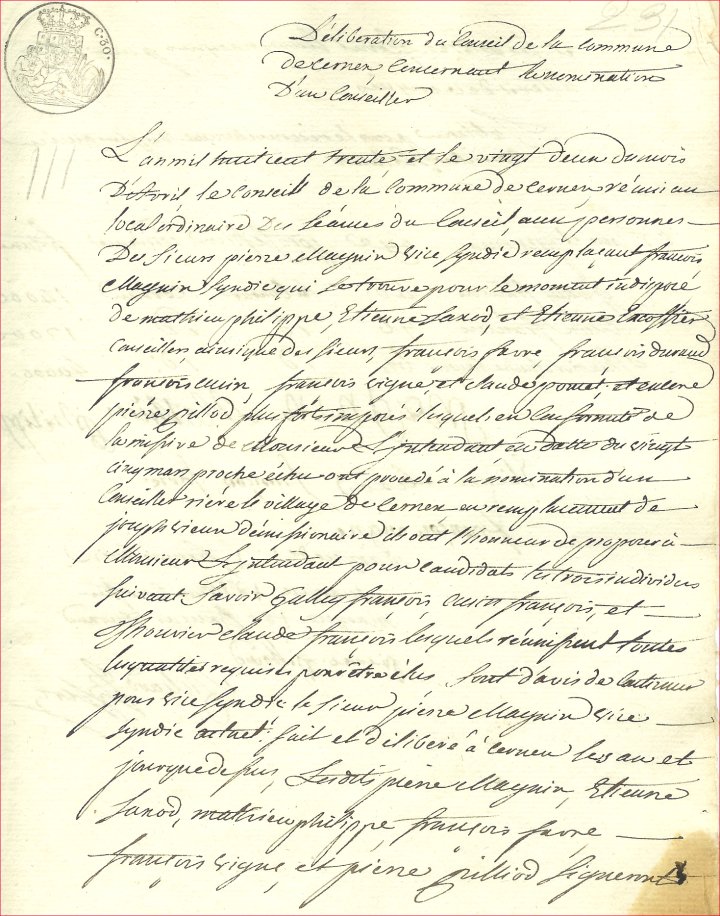 C. 50.
231
Délibération du Conseil de la Commune
de Cernex Concernant la nomination
D'un Conseiller
L'an mil huit cent trente et le vingt deux du mois
D'Avril le Conseil de la Commune de Cernex réuni au
local ordinaire Des Séances du Conseil, aux personnes
Des Sieurs pierre Magnin vice Syndic remplaçant françois
Magnin Syndic qui se trouve pour le moment indisposé
de mathieu philippe, Etienne Saxod, et Etienne Excoffier
Conseillers ainsi que des Sieurs, françois favre françois durand
françois cusin françois vigne et claude et encore
pierre pilliod plus forts imposés lesquels en Conformité de
la missive de Monsieur L'intendant en datte du vingt
cinq mars proche échu ont procédé à la nomination d'un
Conseiller rière le village de Cernex au remplacement de
joseph vieux démissionaire ils ont l'honneur de proposer à
Monsieur L'intendant pour candidats les trois individus
suivant Savoir Gallay françois cusin françois, et
claude françois lesquels réunissent toutes
les qualités requises pour être élus Sont d'avis de Continuer
pour vice Syndic le Sieur pierre Magnin vice
Syndic actuel. fait et délibéré à Cernex les an et
jour que dessus, Lesdits pierre Magnin, Etienne
Saxod, mathieu philippe françois favre
françois vigne, et pierre pilliod Signeront